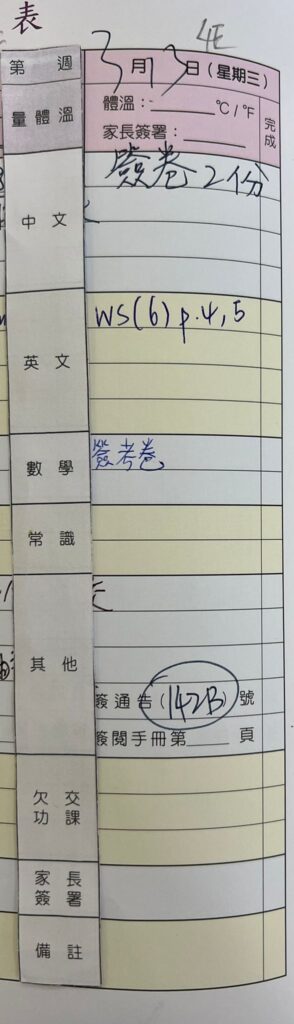 表
4E
第 週 3月13日(星期三)
量體溫 體溫：______℃/℉ 完成
家長簽署：______
中文 簽卷2份
英文 WS(6) p.4,5
數學 簽考卷
常識
其他
簽通告(142B)號
簽閱手冊第____頁
欠交功課
家長簽署
備註